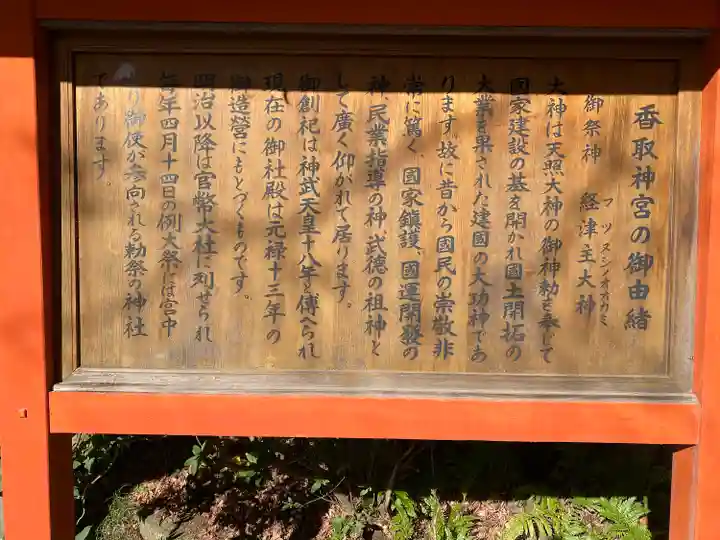 香取神宮の御由緒
フツヌシノオオカミ
御祭神 経津主大神
大神は天照大神の御神勅を奉じて
国家建設の基を開かれ國土開拓の
大業を果された建國の大功神であ
ります。故に昔から國民の崇敬非
常に篤く、國家鎮護、國運開發の
神、民業指導の神、武徳の祖神と
して廣く仰がれて居ります。
御創祀は神武天皇十八年と傳へられ
現在の御社殿は元禄十三年の
御造營にもとづくものです。
明治以降は官幣大社に列せられ
毎年四月十四日の例大祭には宮中
より御使が参向される勅祭の神社
であります。